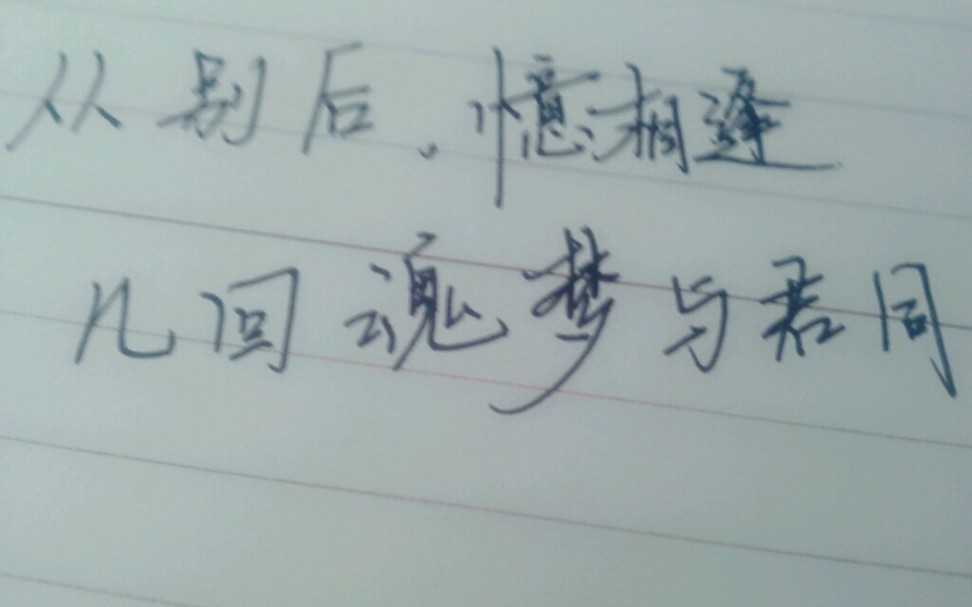 从别后,憶相逢
几回魂梦与君同